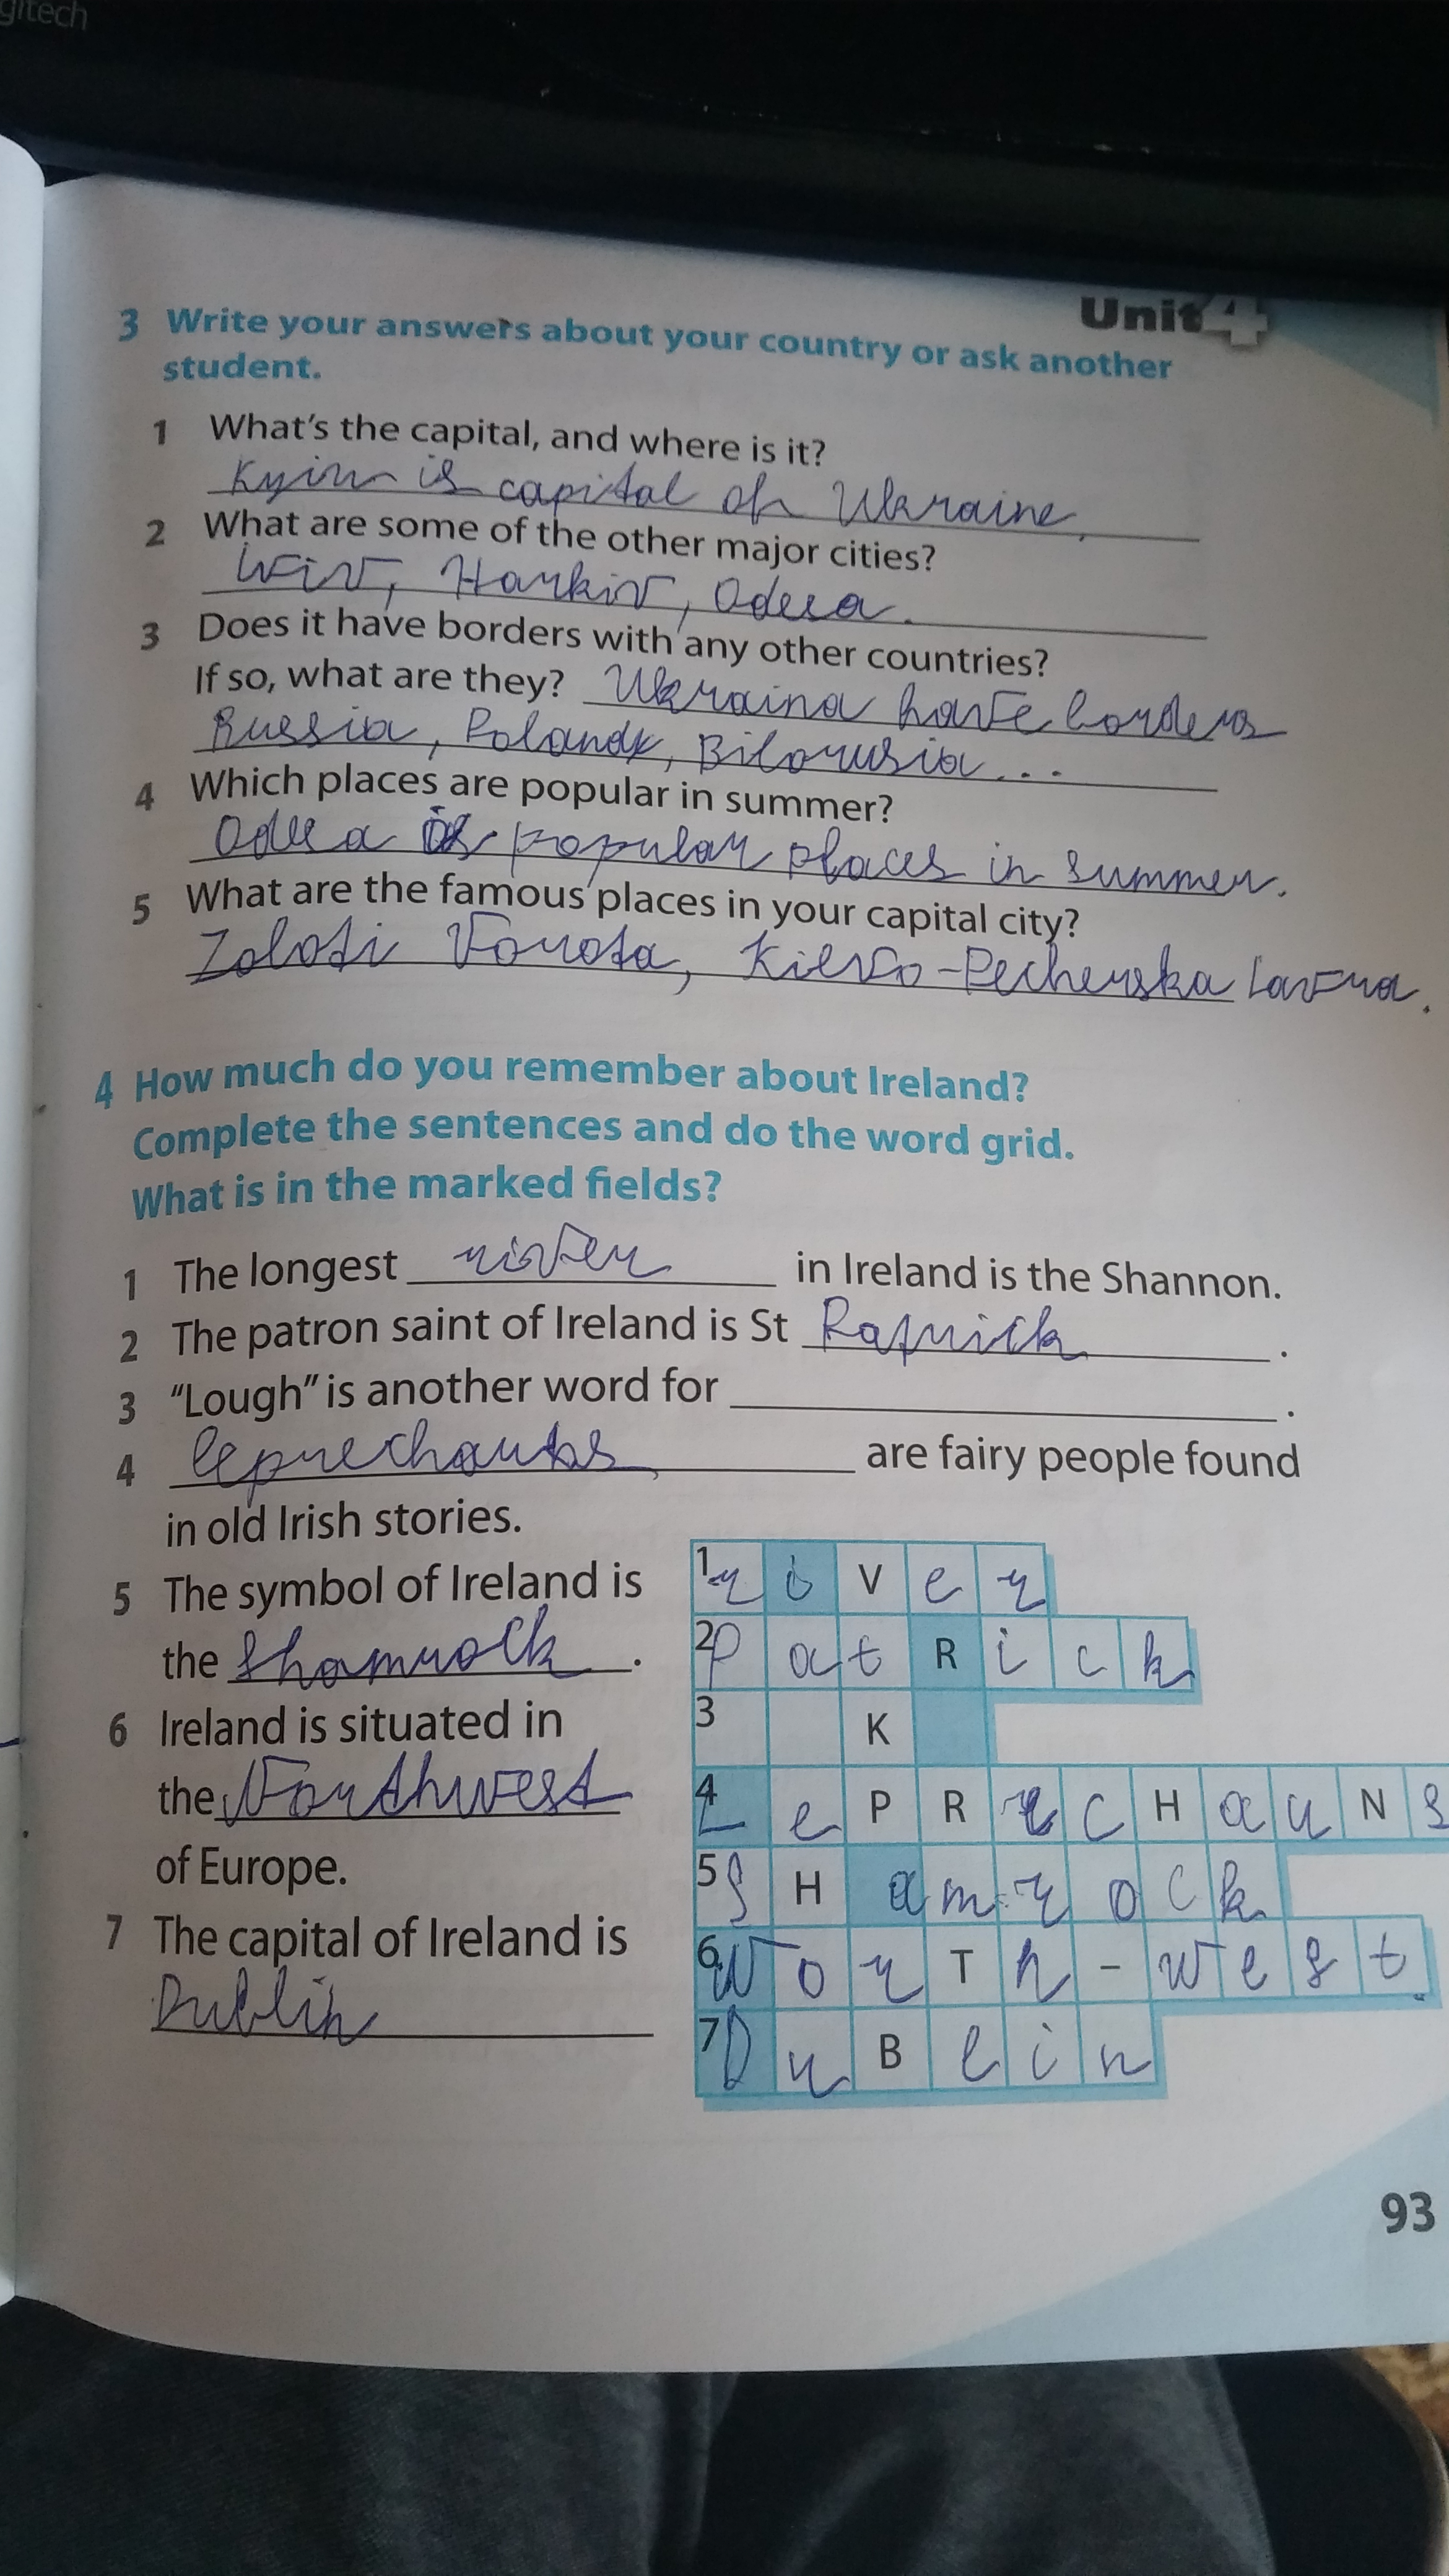 gitech
Unit 4
3 Write your answers about your country or ask another
student.
1 What's the capital, and where is it?
Kyiv is capital of Ukraine,
2 What are some of the other major cities?
Lviv, Harkiv, Odesa.
3 Does it have borders with any other countries?
If so, what are they? Ukraina have borders
Russia, Poland, Bilorusia...
4 Which places are popular in summer?
Odesa is popular places in summer.
5 What are the famous places in your capital city?
Zoloti Vorota, Kievo-Pecherska Lavra.
4 How much do you remember about Ireland?
Complete the sentences and do the word grid.
What is in the marked fields?
1 The longest river in Ireland is the Shannon.
2 The patron saint of Ireland is St Patrick.
3 "Lough" is another word for .
4 leprechauns are fairy people found
in old Irish stories.
5 The symbol of Ireland is
the Shamrock.
6 Ireland is situated in
the Northwest
of Europe.
7 The capital of Ireland is
Dublin
1 r i V e r
2 P a t R i c k
3 K
4 L e P R e c H a u N s
5 S H a m r o c k
6 N o r T h - w e s t
7 D u B l i n
93